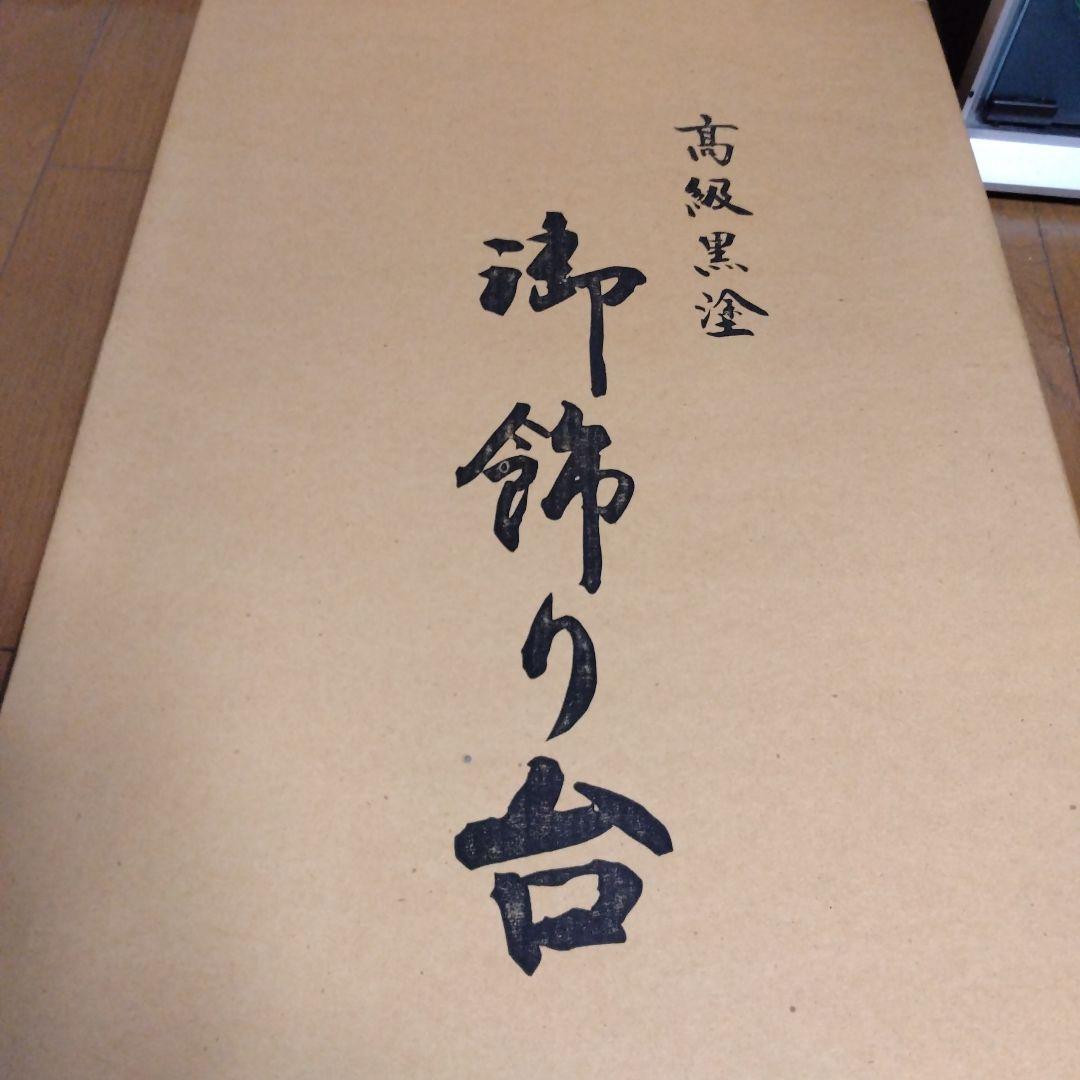 高級黒塗
御飾り台